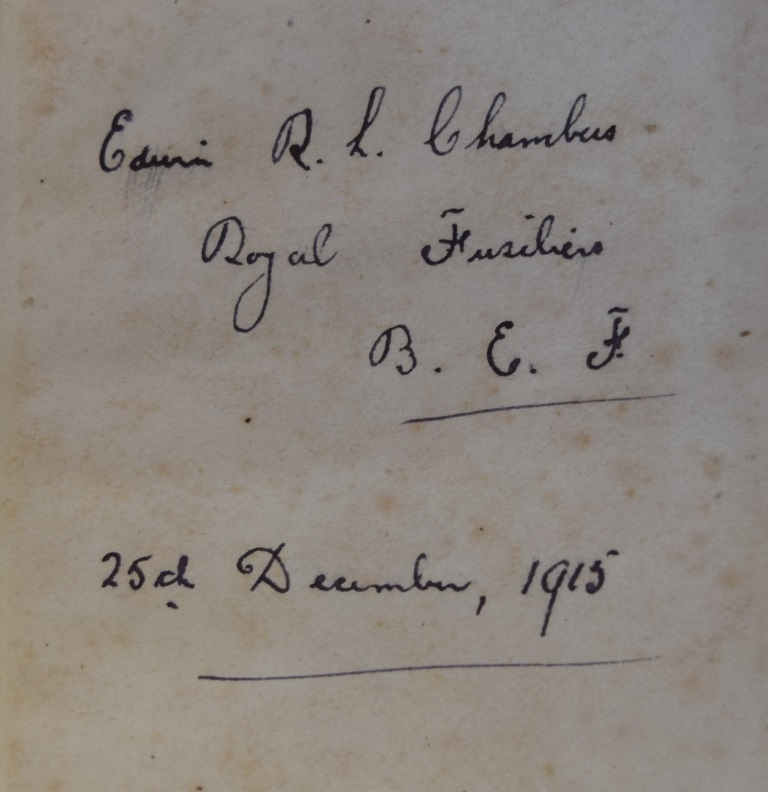 Edwin R. L. Chambers
Royal Fusiliers
B. E. F.
25th December, 1915